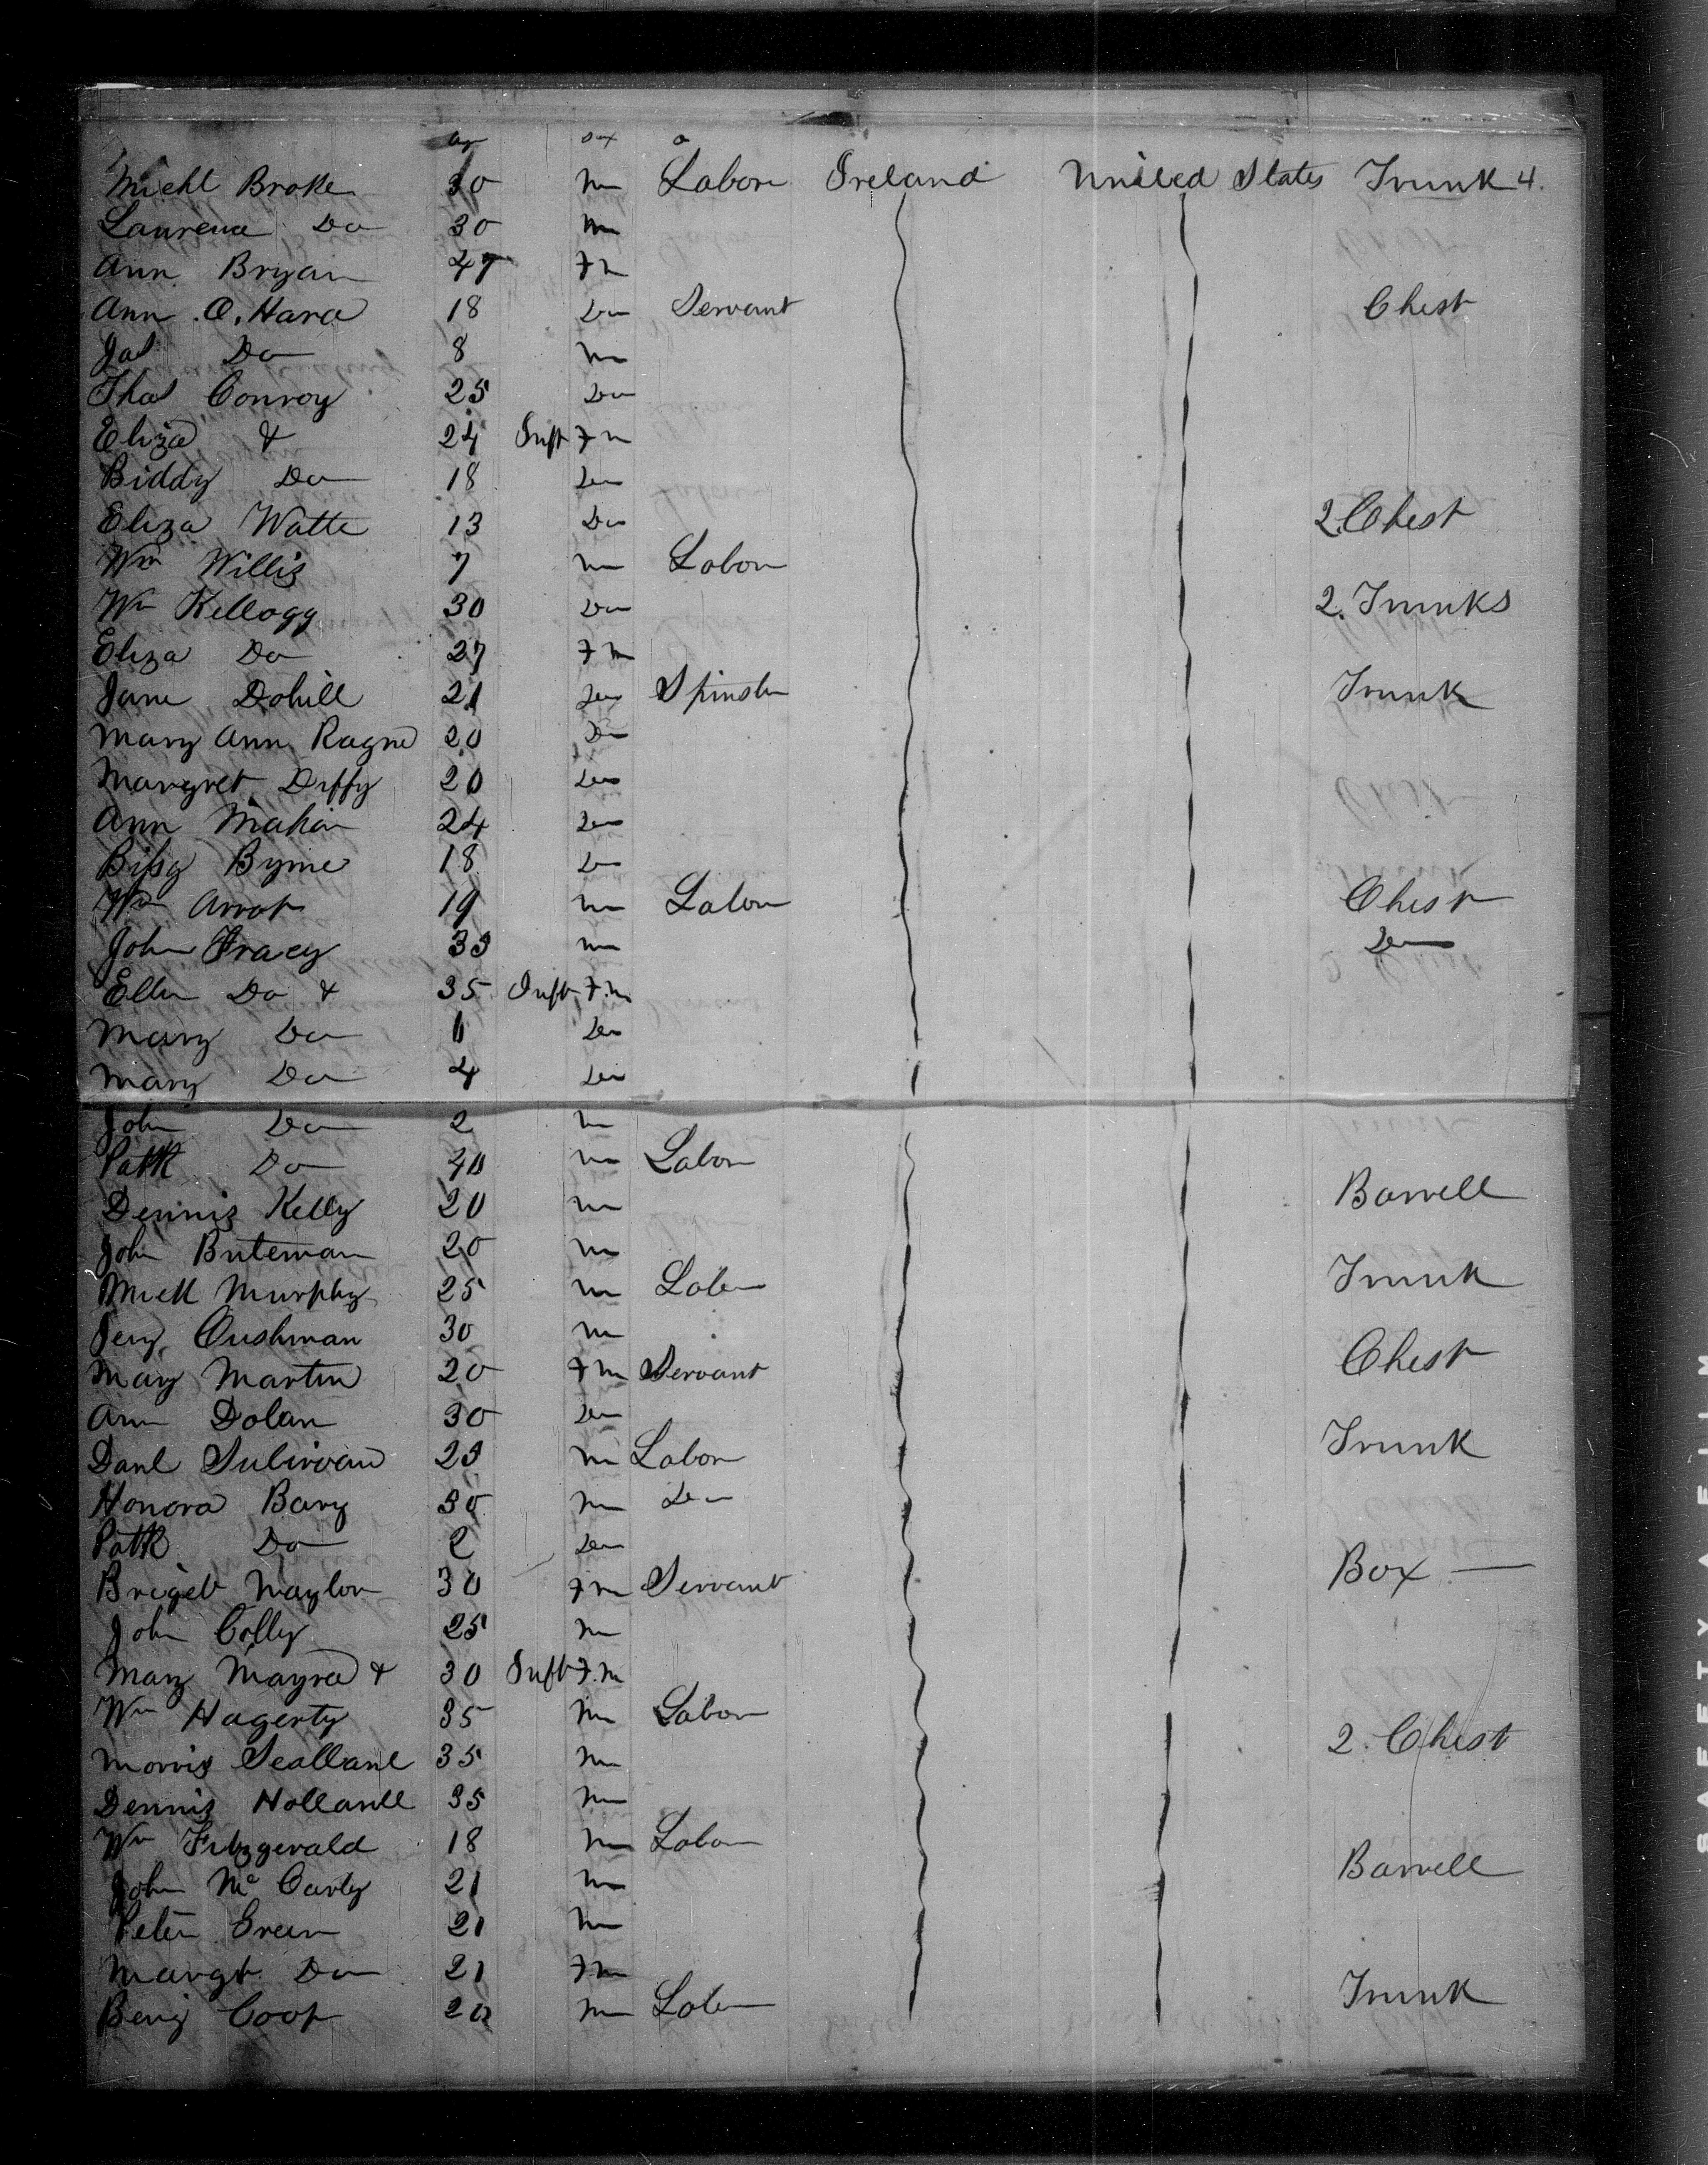 Age Sex
Michl Broke 30 m Labore Ireland United States Trunk 4.
Laurence Do 30 m
Ann Bryan 47 Fm
Ann O, Hara 18 Do Servant Chest
Jas Do 8 m
Thos Conroy 25 Do
Eliza & 24 Inft Fm
Biddy Do 18 Do
Eliza Watte 13 Do 2 Chest
Wm Willis 7 m Labor
Wm Kellogg 30 Do 2. Trunks
Eliza Do 27 Fm
Jane Dohill 21 Do Spinster Trunk
Mary Ann Ragne 20 Do
Margret Diffy 20 Do
Ann Mahon 24 Do
Byrne 18 Do
Wm Arrot 19 m Labor Chest
John Tracy 35 m Do
Ellen Do & 35 Inft F.m
Mary Do 6 Do
Mary Do 4 Do
John Do 2 m
Patk Do 40 m Labor
Dennis Kelly 20 m Barrell
John Buteman 20 m
Michl Murphy 25 m Labor Trunk
Jery Cushman 30 m
Mary Martin 20 Fm Servant Chest
Ann Dolan 30 Do
Danl Sulivvan 25 m Labor Trunk
Honora Bary 30 m Do
Patk Do 2 Do
Briget Naylor 30 Fm Servant Box
John Colly 25 m
Mary Mayra & 30 Inft F.m
Wm Hagerty 35 m Labor 2. Chest
Morris Scallanl 35 m
Dennis Hollanll 35 m
Wm Fitzgerald 18 m Labor Barrell
John Mc Carty 21 m
Peter Green 21 m
Margt Do 21 Fm
Benj Coop 20 m Labor Trunk
SAFETY FILM